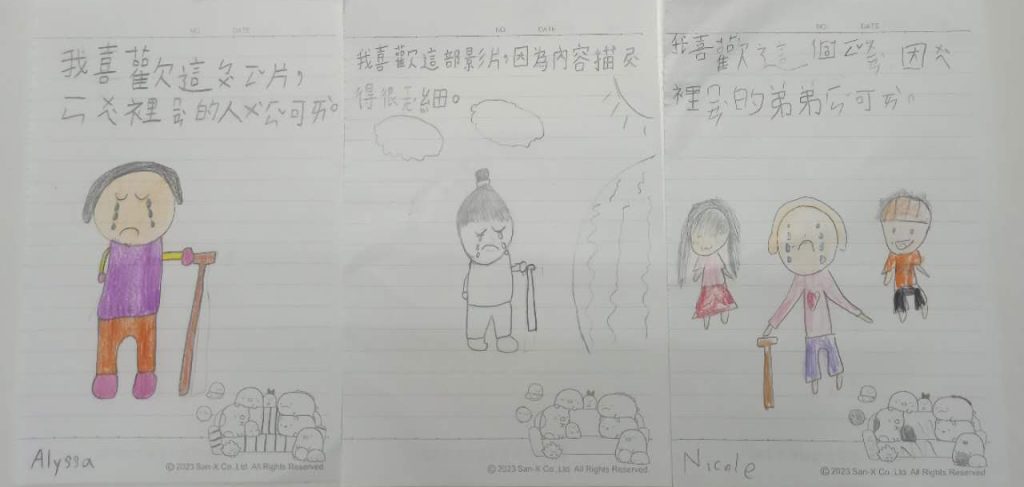 NO. DATE
我喜歡這片，
裡的人ㄨˋ可ㄞˋ。
Alyssa
© 2023 San-X Co., Ltd. All Rights Reserved.
NO. DATE
我喜歡這部影片，因為內容描
得很細。
© 2023 San-X Co., Ltd. All Rights Reserved.
NO. DATE
我喜歡這個因
裡的弟弟可ㄞˋ。
Nicole
© 2023 San-X Co., Ltd. All Rights Reserved.